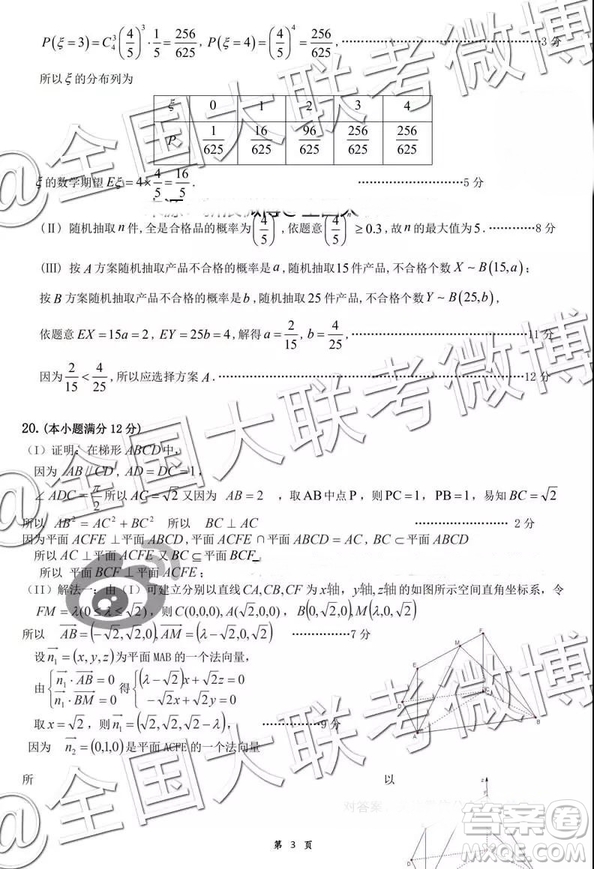 P(ξ=3)=C₄³(4/5)³·1/5=256/625, P(ξ=4)=(4/5)⁴=256/625, ……………………3分
所以ξ的分布列为
ξ 0 1 2 3 4
P 1/625 16/625 96/625 256/625 256/625
ξ的数学期望Eξ=4×4/5=16/5. ……………………5分
(II) 随机抽取n件,全是合格品的概率为(4/5)ⁿ,依题意(4/5)ⁿ≥0.3,故n的最大值为5.…………8分
(III) 按A方案随机抽取产品不合格的概率是a,随机抽取15件产品,不合格个数X~B(15,a);
按B方案随机抽取产品不合格的概率是b,随机抽取25件产品,不合格个数Y~B(25,b),
依题意EX=15a=2, EY=25b=4,解得a=2/15, b=4/25, ……………………11分
因为2/15<4/25,所以应选择方案A. ……………………12分
20.(本小题满分12分)
(I)证明:在梯形ABCD中,
因为 AB∥CD, AD=DC=1,
∠ADC=π/2 所以AC=√2 又因为 AB=2 ,取AB中点P,则PC=1, PB=1,易知BC=√2
所以 AB²=AC²+BC² 所以 BC⊥AC …………………… 2分
因为平面ACFE⊥平面ABCD,平面ACFE∩平面ABCD=AC, BC⊂平面ABCD
所以AC⊥平面ACFE 又BC⊂平面BCF
所以 平面BCF⊥平面ACFE;
(II)解法一:由(I)可建立分别以直线CA,CB,CF为x轴,y轴,z轴的如图所示空间直角坐标系,令
FM=λ(0≤λ≤√2),则C(0,0,0),A(√2,0,0), B(0,√2,0) M(λ,0,√2)
所以 AB=(-√2,√2,0),AM=(λ-√2,0,√2) ……………7分
设n₁=(x,y,z)为平面MAB的一个法向量,
由{n₁·AB=0 n₁·AM=0 得{(λ-√2)x+√2z=0 -√2x+√2y=0
因为 n₂=(0,1,0)是平面ACFE的一个法向量
所 以
第 3 页
@全国大联考微博
@全国大联考微博
@全国大联考微博
答案卷
MXQE.COM